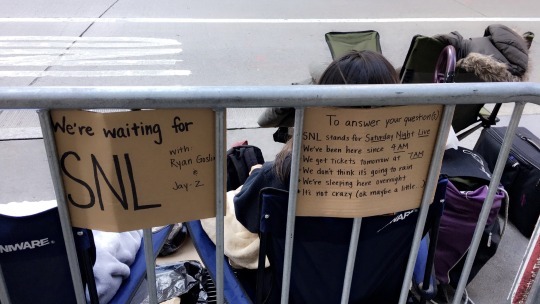 We're waiting for
SNL
with:
Ryan Goslin
&
Jay-Z
To answer your question(s)
SNL stands for Saturday Night Live
We've been here since 4 AM
We get tickets tomorrow at 7AM
We don't think it's going to rain
We're sleeping here overnight
It's not crazy (ok maybe a little...)
NIWARE